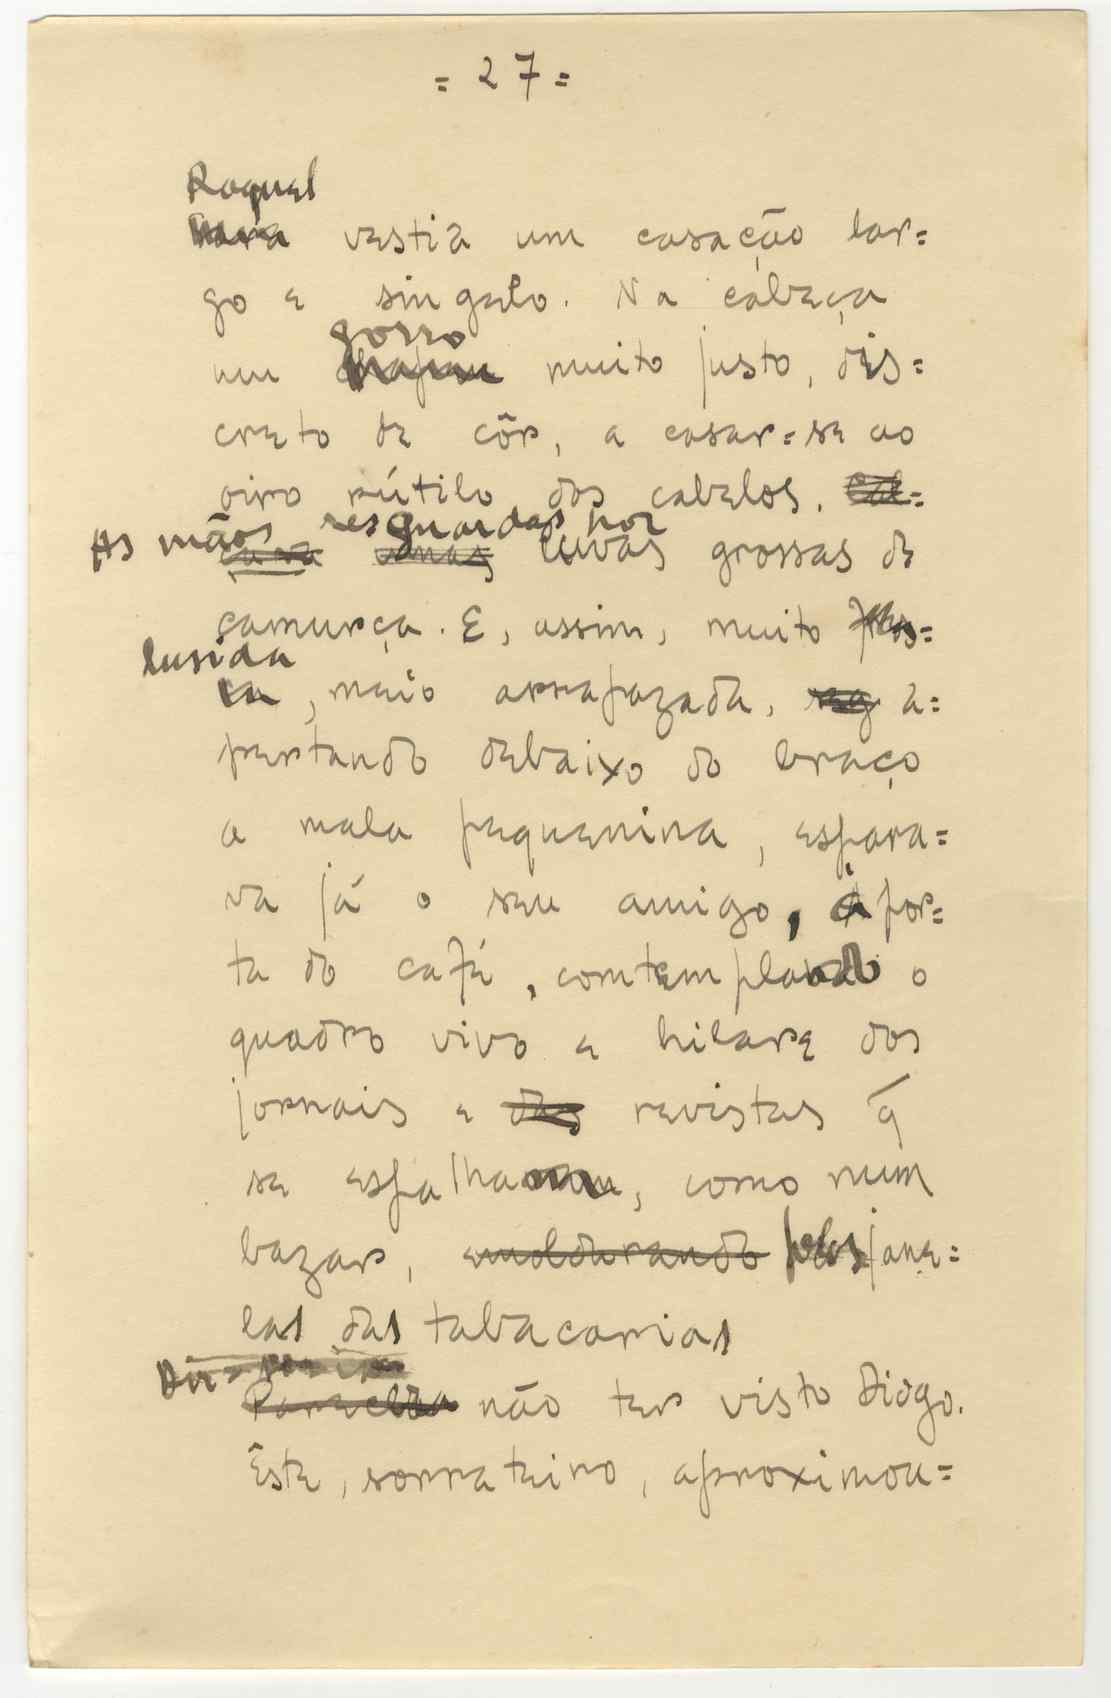 = 27 =
Raquel
vestia um casacão lar=
go e singelo. Na cabeça
gorro
um chapeu muito justo, dis=
creto de côr, a casar=se ao
oiro rútilo dos cabelos. Cal=
As mãos resguardadas por
çava umas luvas grossas de
camurça. E, assim, muito fres=
lusida
ca, meio arrapazada, a=
pertando debaixo do braço
a mala pequenina, espera=
va já o seu amigo, à por=
ta do café, comtemplando o
quadro vivo e hilare dos
jornais e das revistas q̄
se espalhavam, como num
bazar, emoldurando pelas jane=
las das tabacarias
Parecia não ter visto Diogo.
Êste, sorrateiro, aproximou=